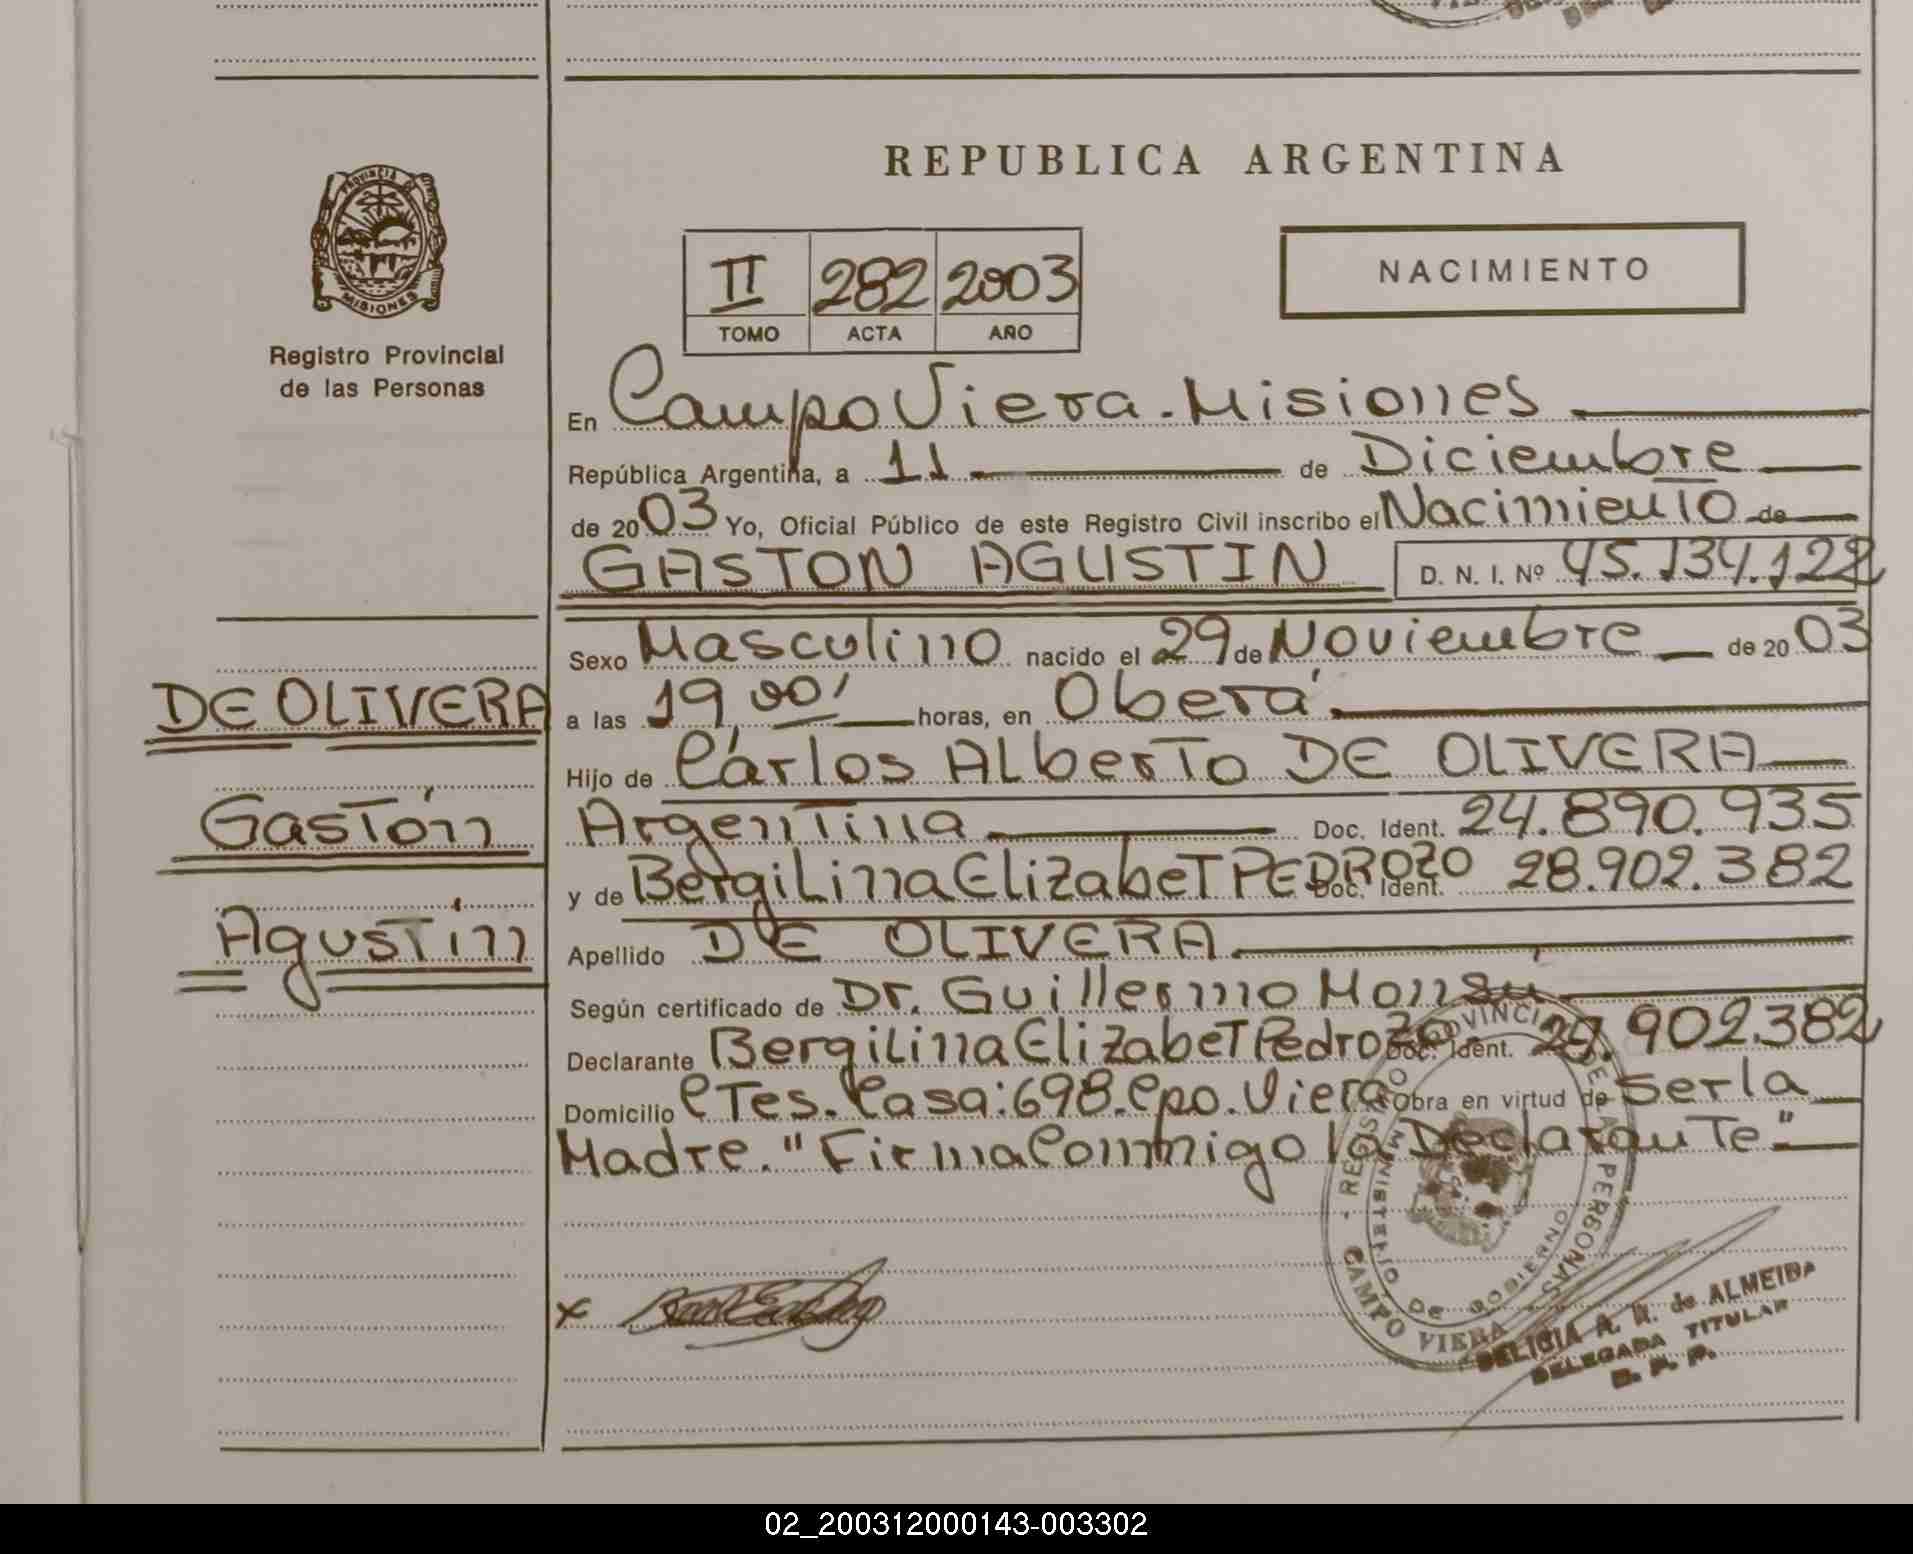 PROVINCIA DE
MISIONES
Registro Provincial
de las Personas
DE OLIVERA
Gastón
Agustín
REPUBLICA ARGENTINA
II 282 2003
TOMO ACTA AÑO
NACIMIENTO
En Campo Viera. Misiones
República Argentina, a 11 de Diciembre
de 2003 Yo, Oficial Público de este Registro Civil inscribo el Nacimiento de
GASTON AGUSTIN D. N. I. Nº 45.134.122
Sexo Masculino nacido el 29 de Noviembre de 2003
a las 19,00' horas, en Oberá
Hijo de Carlos Alberto DE OLIVERA
Argentina Doc. Ident. 24.890.935
y de Bergilina Elizabet PEDROZO Doc. Ident. 28.902.382
Apellido DE OLIVERA
Según certificado de Dr. Guillermo Monsú
Declarante Bergilina Elizabet Pedrozo Doc. Ident. 902.382
Domicilio CTes. Casa: 698. Cpo. Viera Obra en virtud de Ser la
Madre. "Firma Conmigo la Declarante"
x
REGISTRO PROVINCIAL DE LAS PERSONAS
MINISTERIO DE GOBIERNO
CAMPO VIERA
DELICIA A. R. de ALMEIDA
DELEGADA TITULAR
R. P. P.
02_200312000143-003302